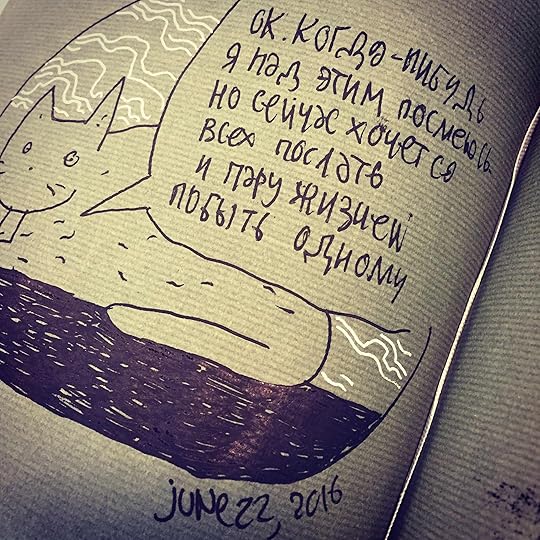 ок. когда-нибудь
я над этим посмеюсь.
но сейчас хочется
всех послать
и пару жизней
побыть одному
june 22, 2016